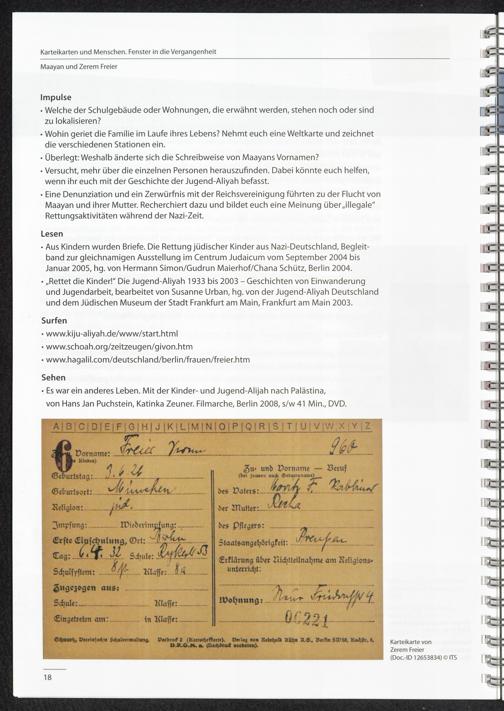 Karteikarten und Menschen. Fenster in die Vergangenheit
Maayan und Zerem Freier
Impulse
• Welche der Schulgebäude oder Wohnungen, die erwähnt werden, stehen noch oder sind
zu lokalisieren?
• Wohin geriet die Familie im Laufe ihres Lebens? Nehmt euch eine Weltkarte und zeichnet
die verschiedenen Stationen ein.
• Überlegt: Weshalb änderte sich die Schreibweise von Maayans Vornamen?
• Versucht, mehr über die einzelnen Personen herauszufinden. Dabei könnte euch helfen,
wenn ihr euch mit der Geschichte der Jugend-Aliyah befasst.
• Eine Denunziation und ein Zerwürfnis mit der Reichsvereinigung führten zu der Flucht von
Maayan und ihrer Mutter. Recherchiert dazu und bildet euch eine Meinung über „illegale"
Rettungsaktivitäten während der Nazi-Zeit.
Lesen
• Aus Kindern wurden Briefe. Die Rettung jüdischer Kinder aus Nazi-Deutschland, Begleit-
band zur gleichnamigen Ausstellung im Centrum Judaicum vom September 2004 bis
Januar 2005, hg. von Hermann Simon/Gudrun Maierhof/Chana Schütz, Berlin 2004.
• „Rettet die Kinder!" Die Jugend-Aliyah 1933 bis 2003 – Geschichten von Einwanderung
und Jugendarbeit, bearbeitet von Susanne Urban, hg. von der Jugend-Aliyah Deutschland
und dem Jüdischen Museum der Stadt Frankfurt am Main, Frankfurt am Main 2003.
Surfen
• www.kiju-aliyah.de/www/start.html
• www.schoah.org/zeitzeugen/givon.htm
• www.hagalil.com/deutschland/berlin/frauen/freier.htm
Sehen
• Es war ein anderes Leben. Mit der Kinder- und Jugend-Alijah nach Palästina,
von Hans Jan Puchstein, Katinka Zeuner. Filmarche, Berlin 2008, s/w 41 Min., DVD.
A B C D E F G H I J K L M N O P Q R S T U V W X Y Z
6 Vorname: Freier
Geburtstag: 9.6.26
Geburtsort: München
Religion: jüd.
Impfung: Wiederimpfung:
Erste Einschulung, Ort: Berlin
Tag: 6.4. 32 Schule: 53
Schulsystem: Klasse: 8a
Zugezogen aus:
Schule: Klasse:
Eingetreten am: in Klasse:
Zu- und Vorname — Beruf
des Vaters: Moritz F. Rabbiner
der Mutter: Recha
des Pflegers:
Staatsangehörigkeit: Preußen
Erklärung über Nichtteilnahme am Religions-
unterricht:
Wohnung: 4
06221
Karteikarte von
Zerem Freier
(Doc.-ID 12653834) © ITS
18